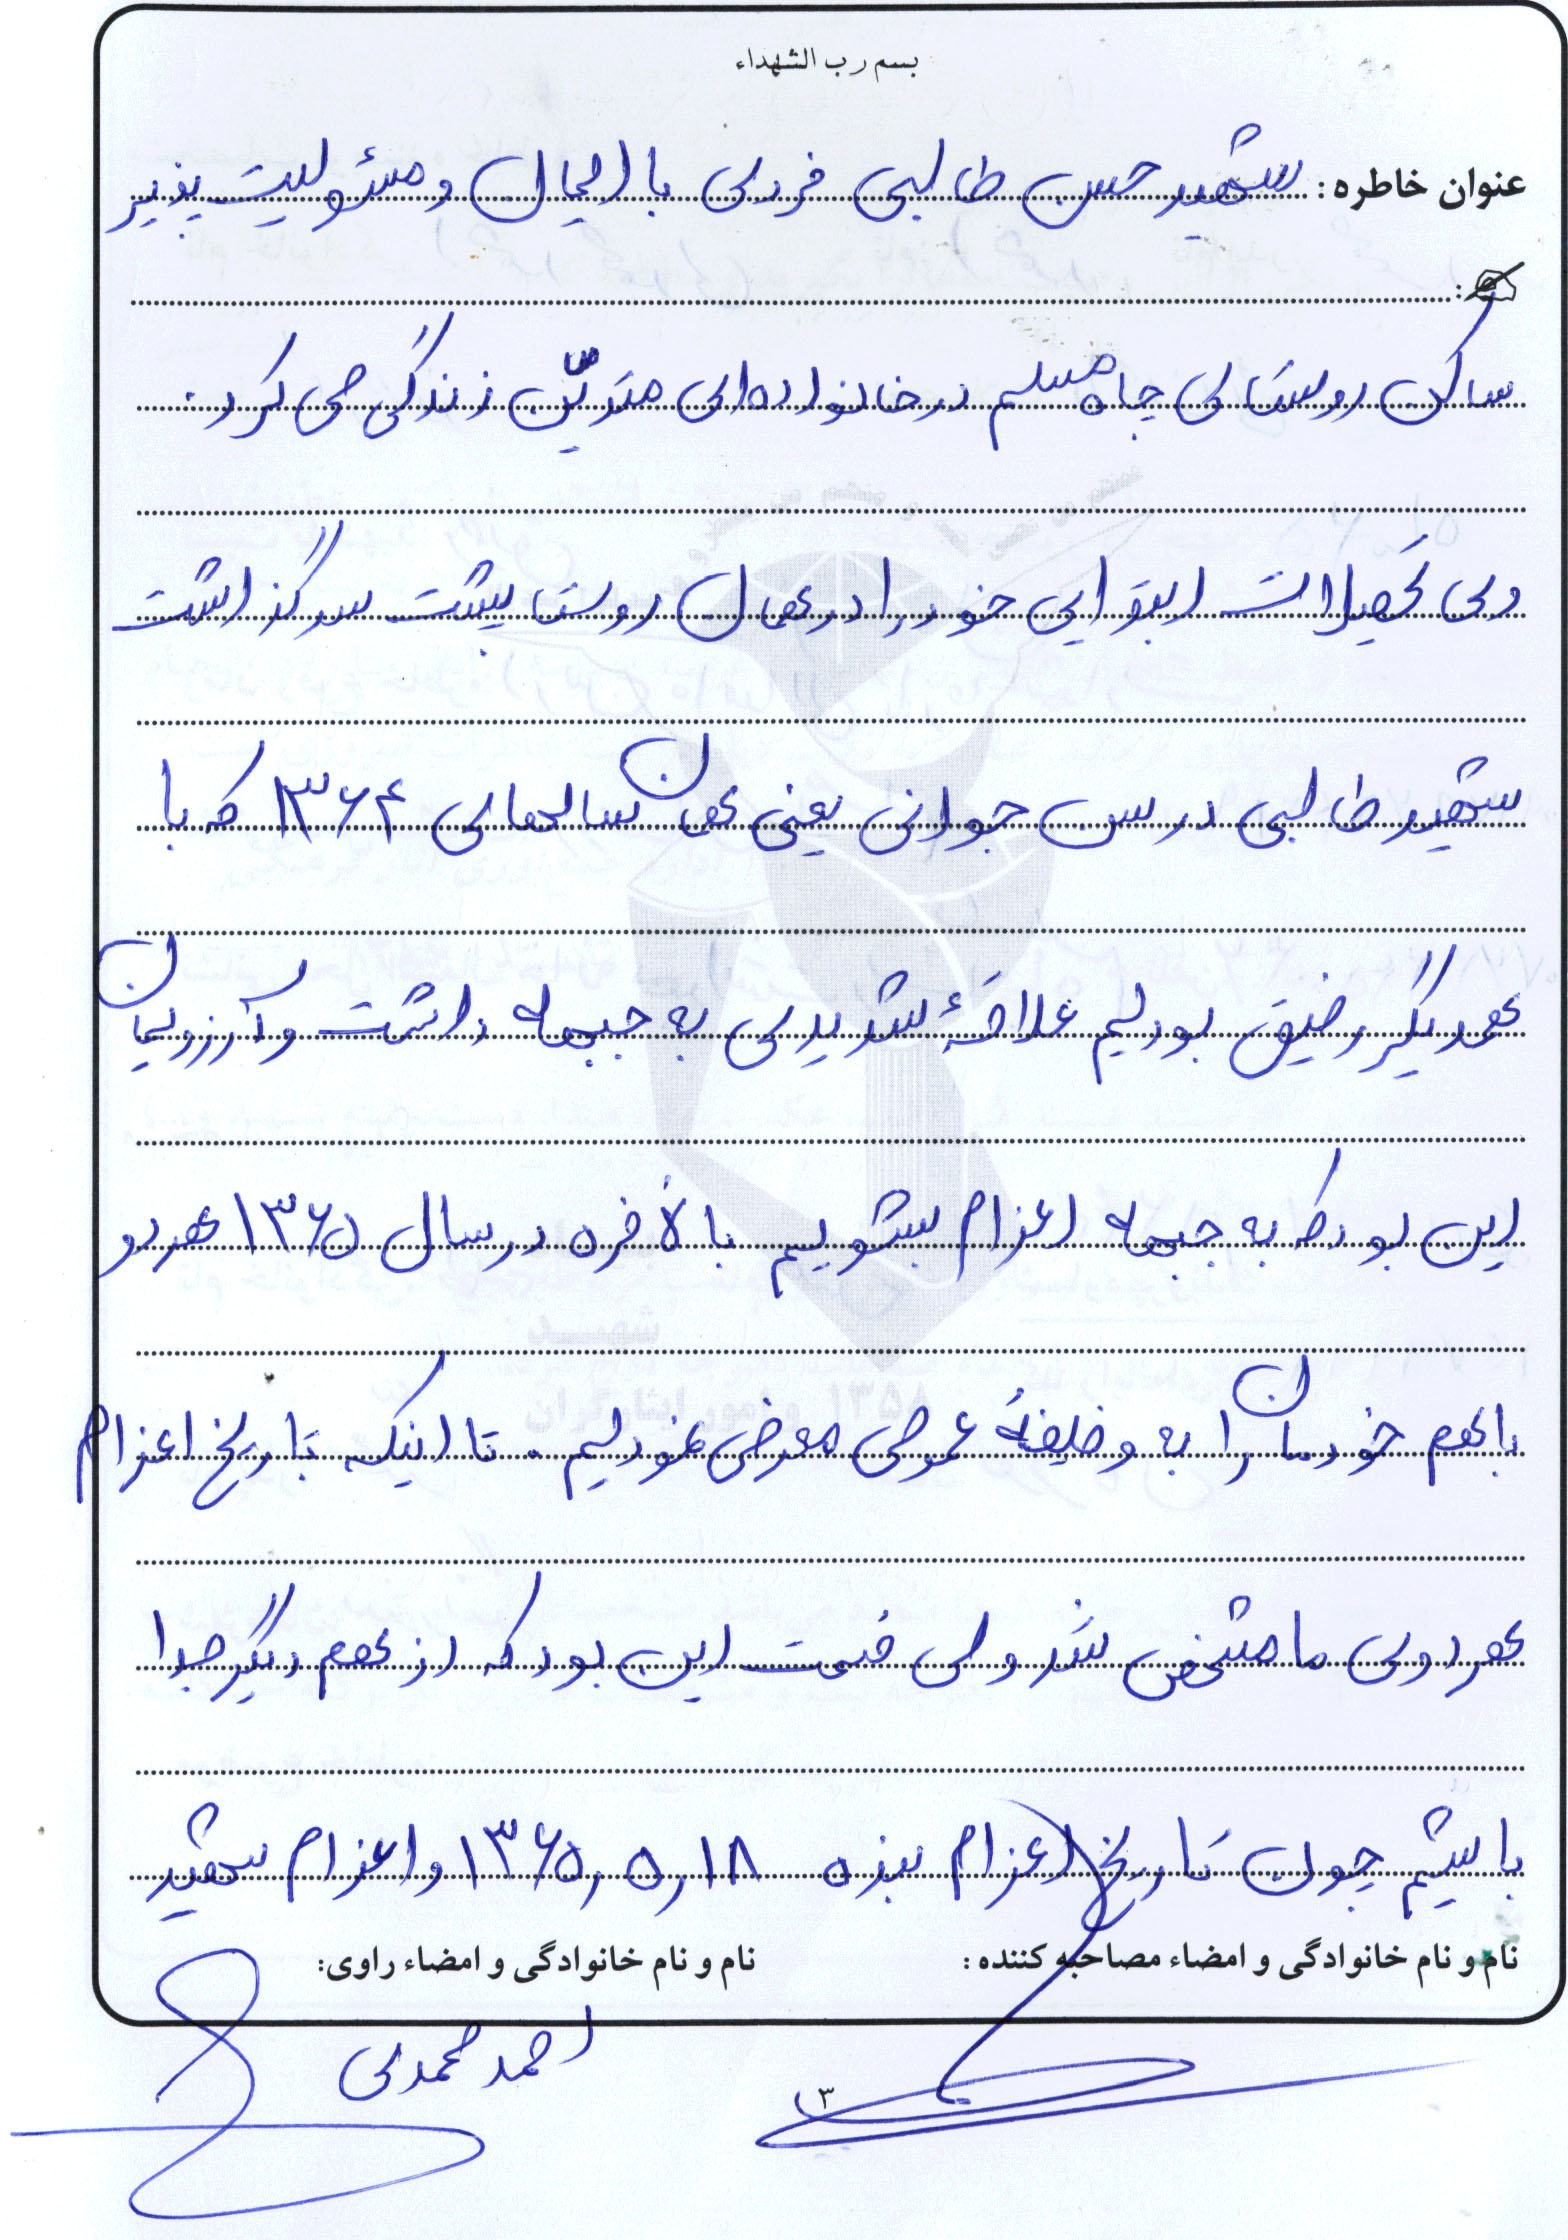 بسم رب الشهداء
عنوان خاطره: شهید حسن طالبی فردی با ایمان و مسئولیت پذیر
ساکن روستای چاه مسلم در خانواده ای متدیّن زندگی می کرد.
وی تحصیلات ابتدایی خود را در همان روستا پشت سر گذاشت
شهید طالبی در سن جوانی یعنی همان سالهای ۱۳۶۴ که با
همدیگر رفیق بودیم علاقهٔ شدیدی به جبهه داشت و آرزویمان
این بود که به جبهه اعزام بشویم بالاخره در سال ۱۳۶۵ هر دو
با هم خودمان را به وظیفهٔ عمومی معرفی نمودیم. تا اینکه تاریخ اعزام
هر دوی ما مشخص شد ولی قسمت این بود که از هم دیگر جدا
باشیم چون تاریخ اعزام بنده ۱۳۶۵٫۵٫۱۸ و اعزام شهید
نام و نام خانوادگی و امضاء مصاحبه کننده: نام و نام خانوادگی و امضاء راوی:
احمد محمدی
۳